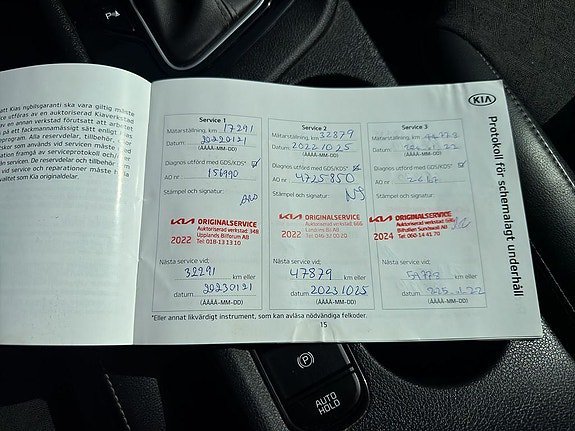 att Kias nybilsgaranti ska vara giltig måste
utföras av en auktoriserad Kiaverkstad
av en annan verkstad förutsatt att arbetet
på ett fackmannamässigt sätt enligt Kias
program. Alla reservdelar, tillbehör
som används vid servicen måste
framgå av serviceprotokoll och/eller
servicen. De reservdelar och tillbehör
vid service och reparationer måste
kvalitet som Kia originaldelar.
KIA
Protokoll för schemalagt underhåll
Service 1
Mätarställning, km 17291
Datum 20220121
(ÅÅÅÅ-MM-DD)
Diagnos utförd med GDS/KDS*
AO nr 156990
Stämpel och signatur:
KIA ORIGINALSERVICE
Auktoriserad verkstad: 348
2022 Upplands Bilforum AB
Tel: 018-13 13 10
Nästa service vid:
32291 km eller
datum 20230121
(ÅÅÅÅ-MM-DD)
Service 2
Mätarställning, km 32879
Datum 20221025
(ÅÅÅÅ-MM-DD)
Diagnos utförd med GDS/KDS*
AO nr 4225850
Stämpel och signatur:
NS
KIA ORIGINALSERVICE
Auktoriserad verkstad: 666
2022
Tel: 046-32 00 20
Nästa service vid:
47879 km eller
datum 20231025
(ÅÅÅÅ-MM-DD)
Service 3
Mätarställning, km 44778
Datum
(ÅÅÅÅ-MM-DD)
Diagnos utförd med GDS/KDS*
AO nr
Stämpel och signatur:
KIA ORIGINALSERVICE
Auktoriserad verkstad:
2024 Bilhallen Sundsvall AB
Tel: 060-14 41 70
Nästa service vid:
km eller
datum
(ÅÅÅÅ-MM-DD)
*Eller annat likvärdigt instrument, som kan avläsa nödvändiga felkoder.
15
P
AUTO
HOLD